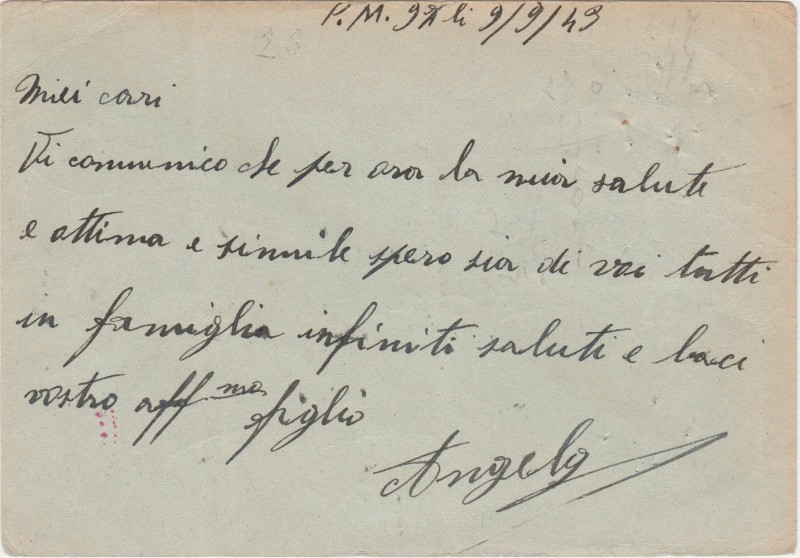 P. M. 92 li 9/9/43
Miei cari
Vi comunico che per ora la mia salute
e ottima e simile spero sia di voi tutti
in famiglia infiniti saluti e baci
vostro affmo figlio
Angelo